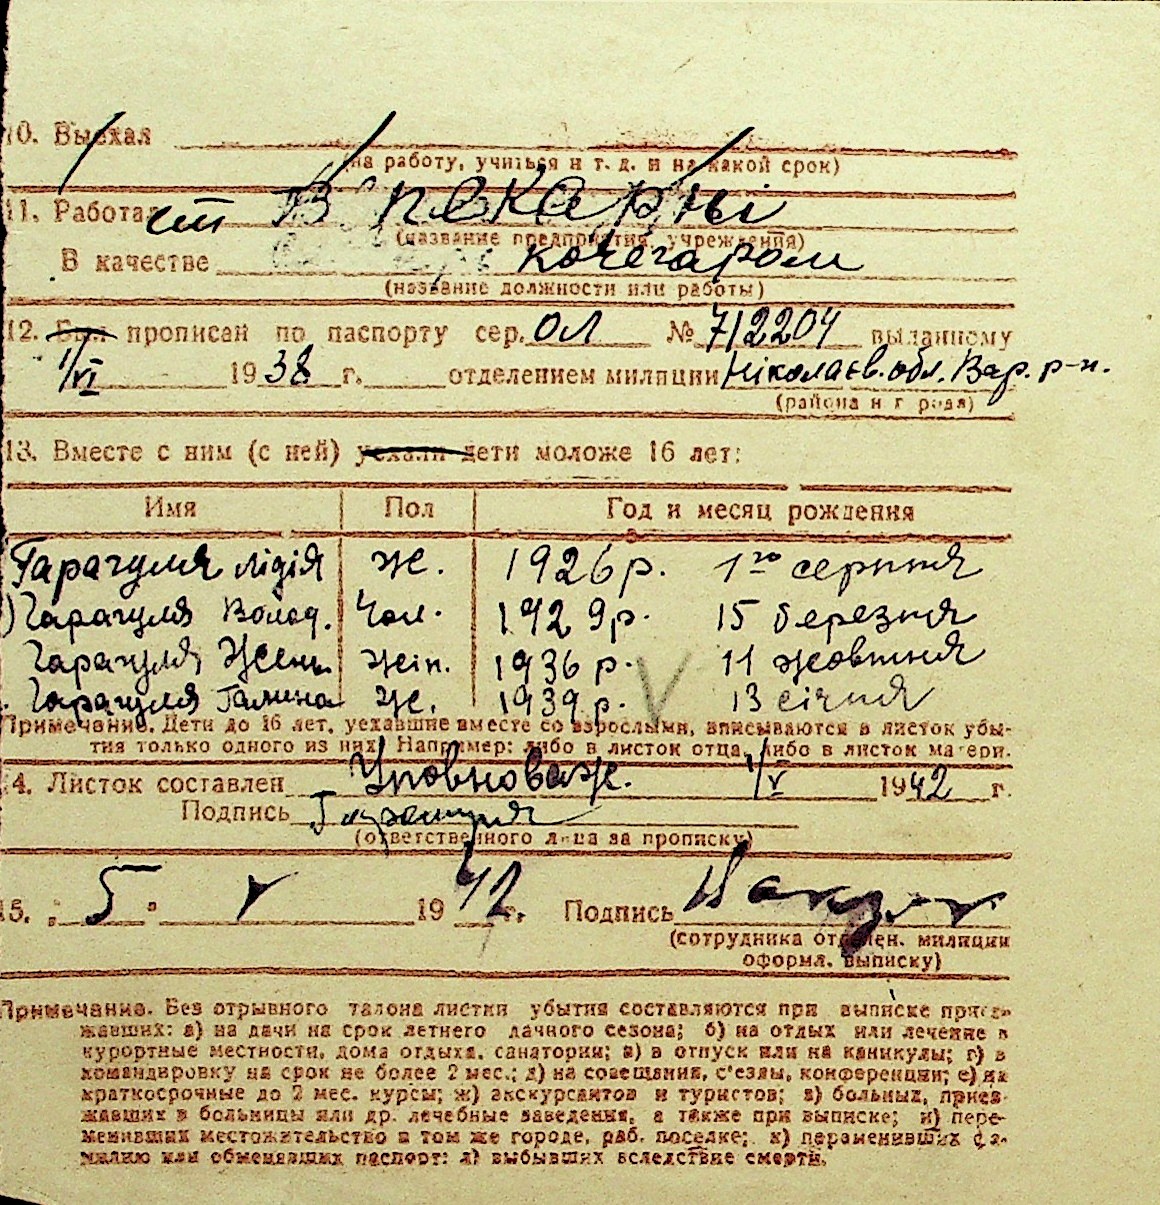 10. Выехал
(на работу, учиться и т. д. и на какой срок)
11. Работал ет В пекарні
(название предприятия, учреждения)
В качестве кочегаром
(название должности или работы)
12. Был прописан по паспорту сер. ОЛ № 712204 выданному
1/VI 1938 г. отделением милиции Ніколаєв. обл. Вар. р-н.
(района и города)
13. Вместе с ним (с ней) уехали дети моложе 16 лет:
Имя Пол Год и месяц рождения
Гарагуля Лідія Ж. 1926 р. 1го серпня
Гарагуля Волод. Чол. 1929 р. 15 березня
Гарагуля Жень. Жін. 1936 р. 11 жовтня
Гарагуля Галина Ж. 1939 р. 13 січня
Примечание. Дети до 16 лет, уехавшие вместе со взрослыми, вписываются в листок убы-
тия только одного из них. Например: либо в листок отца, либо в листок матери.
14. Листок составлен Уповноваж. 1/V 1942 г.
Подпись
(ответственного лица за прописку)
15. „5" V 1942 г. Подпись
(сотрудника отделен. милиции
оформл. выписку)
Примечание. Без отрывного талона листки убытия составляются при выписке приез-
жавших: а) на дачи на срок летнего дачного сезона; б) на отдых или лечение в
курортные местности, дома отдыха, санатории; в) в отпуск или на каникулы; г) в
командировку на срок не более 2 мес.; д) на совещания, с'езды, конференции; е) на
краткосрочные до 2 мес. курсы; ж) экскурсантов и туристов; з) больных, приез-
жавших в больницы или др. лечебные заведения, а также при выписке; и) пере-
менивших местожительство в том же городе, раб. поселке; к) переменивших фа-
милию или обменявших паспорт; л) выбывших вследствие смерти.